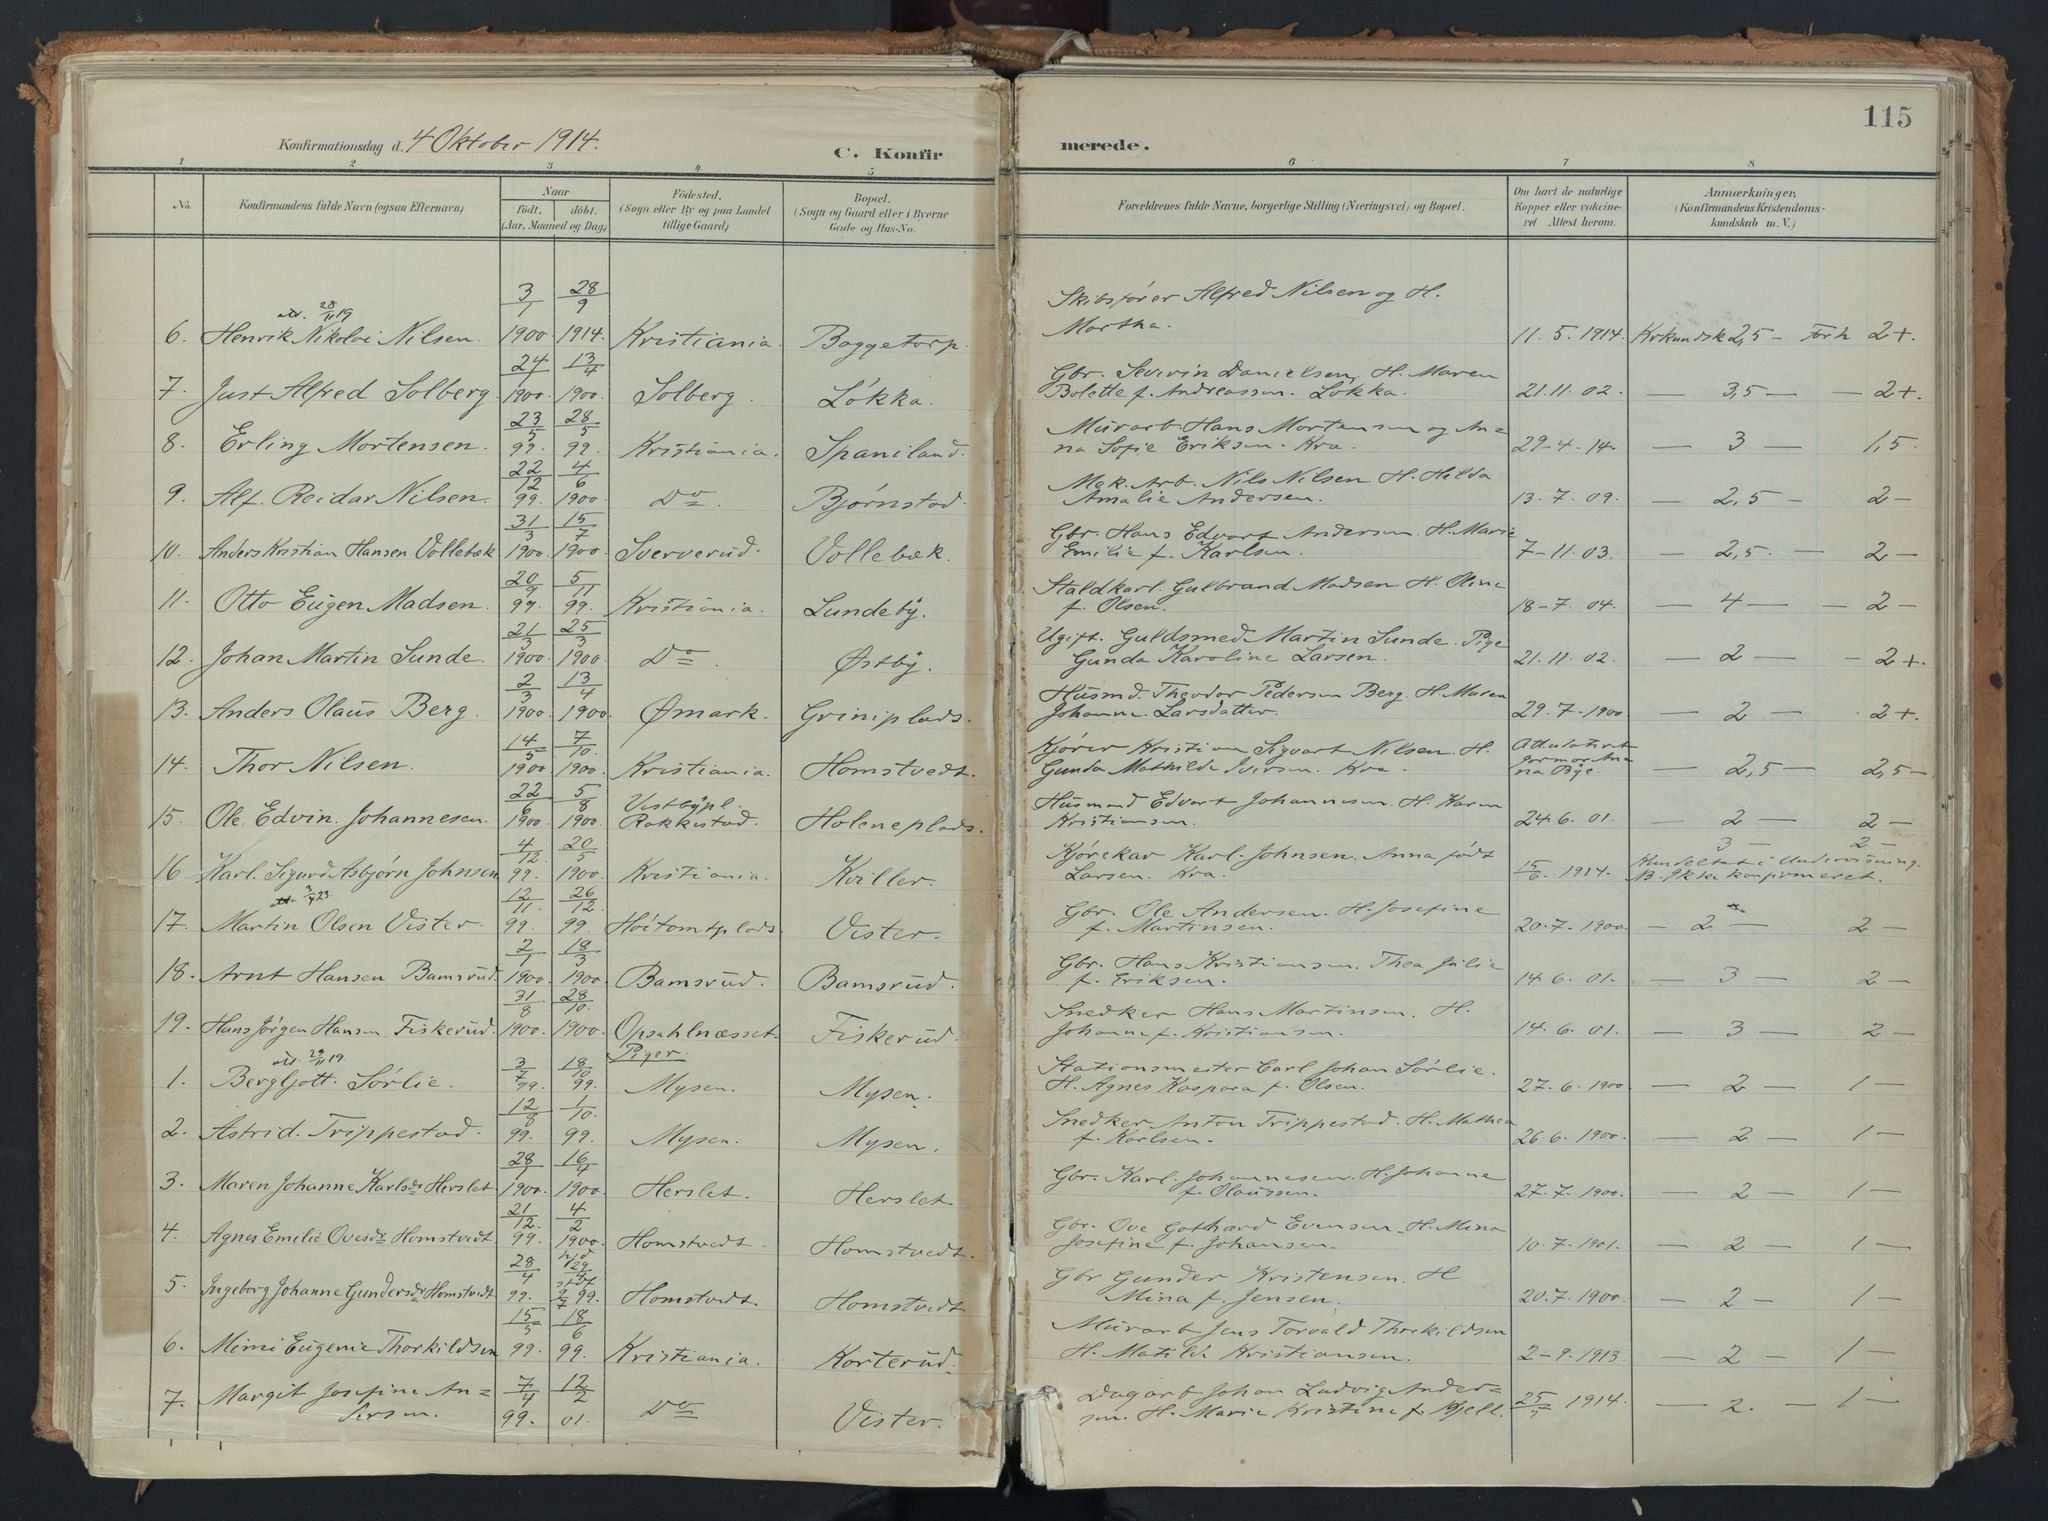 115
Konfirmationsdag d. 4 Oktober 1914.
C. Konfir
merede.
1 2 3 4 5 6 7 8
No. Konfirmandens fulde Navn (ogsaa Efternavn) Naar Födt. döbt. (Aar, Maaned og Dag) Födested. (Sogn eller By og paa Landet tillige Gaard) Bopæl. (Sogn og Gaard eller i Byerne Gade og Hus-No. Forældrenes fulde Navne, borgerlige Stilling (Næringsvei) og Bopæl. Om havt de naturlige Kopper eller vakcineret Attest herom. Anmærkninger. (Konfirmandens Kristendomskundskab m. V.)
att. 28/11 19
6. Henrik Nikolai Nilsen. 3/1 1900 28/9 1914. Kristiania. Baggetorp. Skibsfører Alfred Nilsen og H. Martha. 11. 5. 1914. Krkundsk 2,5 – Forh 2+.
7. Just Alfred Solberg. 24/1 1900. 13/4 1900. Solberg. Løkka. Gbr. Severin Danielsen, H. Maren Bolette f. Andreassen. Løkka. 21. 11. 02. — 3,5 — — 2+.
8. Erling Mortensen. 23/5 99. 28/5 99. Kristiania. Spaniland. Murarb. Hans Mortensen og Anna Sofie Eriksen. Kra. 29-4-14. — 3 — 1,5 —
9. Alf. Reidar Nilsen. 22/12 99. 4/6 1900. Do. Bjørnstad. Mek. Arb. Nils Nilsen. H. Hilda Amalie Andersen. 13. 7. 09. — 2,5 — 2 —
10. Anders Kristian Hansen Vollebæk 31/3 1900. 15/7 1900. Sververud. Vollebæk. Gbr. Hans Edvart Andersen. H. Marie Emilie f. Karlsen. 7-11. 03. — 2,5. — 2 —
11. Otto Eugen Madsen. 20/9 99. 5/11 99. Kristiania. Lundeby. Staldkarl. Gulbrand Madsen H. Oline f. Olsen. 18-7. 04. — 4 — — 2 —
12. Johan Martin Sunde. 21/3 1900. 25/3 1900. Do. Østby. Ugift. Guldsmed Martin Sunde. Pige Gunda Karoline Larsen. 21. 11. 02. — 2 — - 2+.
13. Anders Olaus Berg. 2/3 1900. 13/4 1900. Ømark. Griniplads. Husmd. Theodor Pedersen Berg. H. Maren Johanne Larsdatter. 29. 7-1900 — 2 — . 2+.
14. Thor Nilsen. 14/5 1900 7/10 1900. Kristiania. Homstvedt. Kjører Kristian Sigvart Nilsen. H. Gunda Mathilde Iversen. Kra. — 2,5 — 2,5 —
15. Ole Edvin. Johannesen. 22/6 1900. 5/8 1900. Vestbypl. Rakkestad. Holeneplads. Husmand Edvart Johannesen. H. Karen Kristiansen. 24. 6. 01. — 2 — 2 —
16 Karl. Sigurd Asbjørn Johnsen 4/12 99. 20/5 1900. Kristiania. Kviller. Kjørekar Karl. Johnsen. Anna født Larsen. Kra. 15/6. 1914. 3 — 2 — i Undervisning. Ikke konfirmeret.
17. Martin Olsen Vister. 12/11 99. 26/12 99. Høitomtplads. Vister. Gbr. Ole Andersen. H. Josefine f. Martinsen. 20. 7. 1900. — 2 — 2 —
18. Arnt Hansen Bamsrud. 2/1 1900 18/3 1900. Bamsrud. Bamsrud. Gbr. Hans Kristiansen. Thea Julie f. Eriksen. 14. 6. 01. — 3 — 2 —
19. Hans Jørgen Hansen Fiskerud. 31/8 1900. 28/10. 1900. Opsahlnæsset. Fiskerud. Snedker Hans Martinsen. H. Johanne f. Kristiansen. 14. 6. 01. — 3 — 2 —
Piger.
1. Bergljott. Sørlie. 3/7 99. 18/10 99. Mysen. Mysen. Stationsmester Carl Johan Sørlie. H. Agnes Kaspara f. Olsen. 27. 6. 1900. — 2 — 1 —
2. Astrid. Trippestad. 12/8 99. 1/10. 99. Mysen. Mysen. Snedker Anton Trippestad. H. Mathea f. Karlsen. 26. 6. 1900. — 2 — 1 —
3. Maren Johanne Karlsdr Herslet 28/1 1900. 16/4 1900. Herslet. Herslet. Gbr. Karl. Johannesen. H. Johanne f. Olaussen. 27. 7. 1900. — 2 — 1 —
4. Agnes Emilie Ovesdr Homstvedt 21/12. 99. 4/2 1900. Homstvedt. Homstvedt. Gbr. Ove Gothard Evensen. H. Mina Josefine f. Johansen. 10. 7. 1901. — 2 — 1 —
5. Ingeborg Johanne Gundersdr Homstvedt 28/4 99. 2/7 99. Homstvedt. Homstvedt. Gbr Gunder Kristensen. H Mina f. Jensen. 20. 7. 1900. — 2 — 1 —
6. Mimi Eugenie Thorkildsen 15/5 99. 18/6 99. Kristiania. Korterud. Murarb Jens Torvald Thorkildsen H. Matilde Kristiansen. 2-9. 1913. — 2 — 1 —
7. Margit Josefine Andersen. 7/4 99. 12/2 01. Do Vister. Dagarb Johan Ludvig Andersen. H. Marie Kristine f. Kjell. 1914. — 2. — 1 —